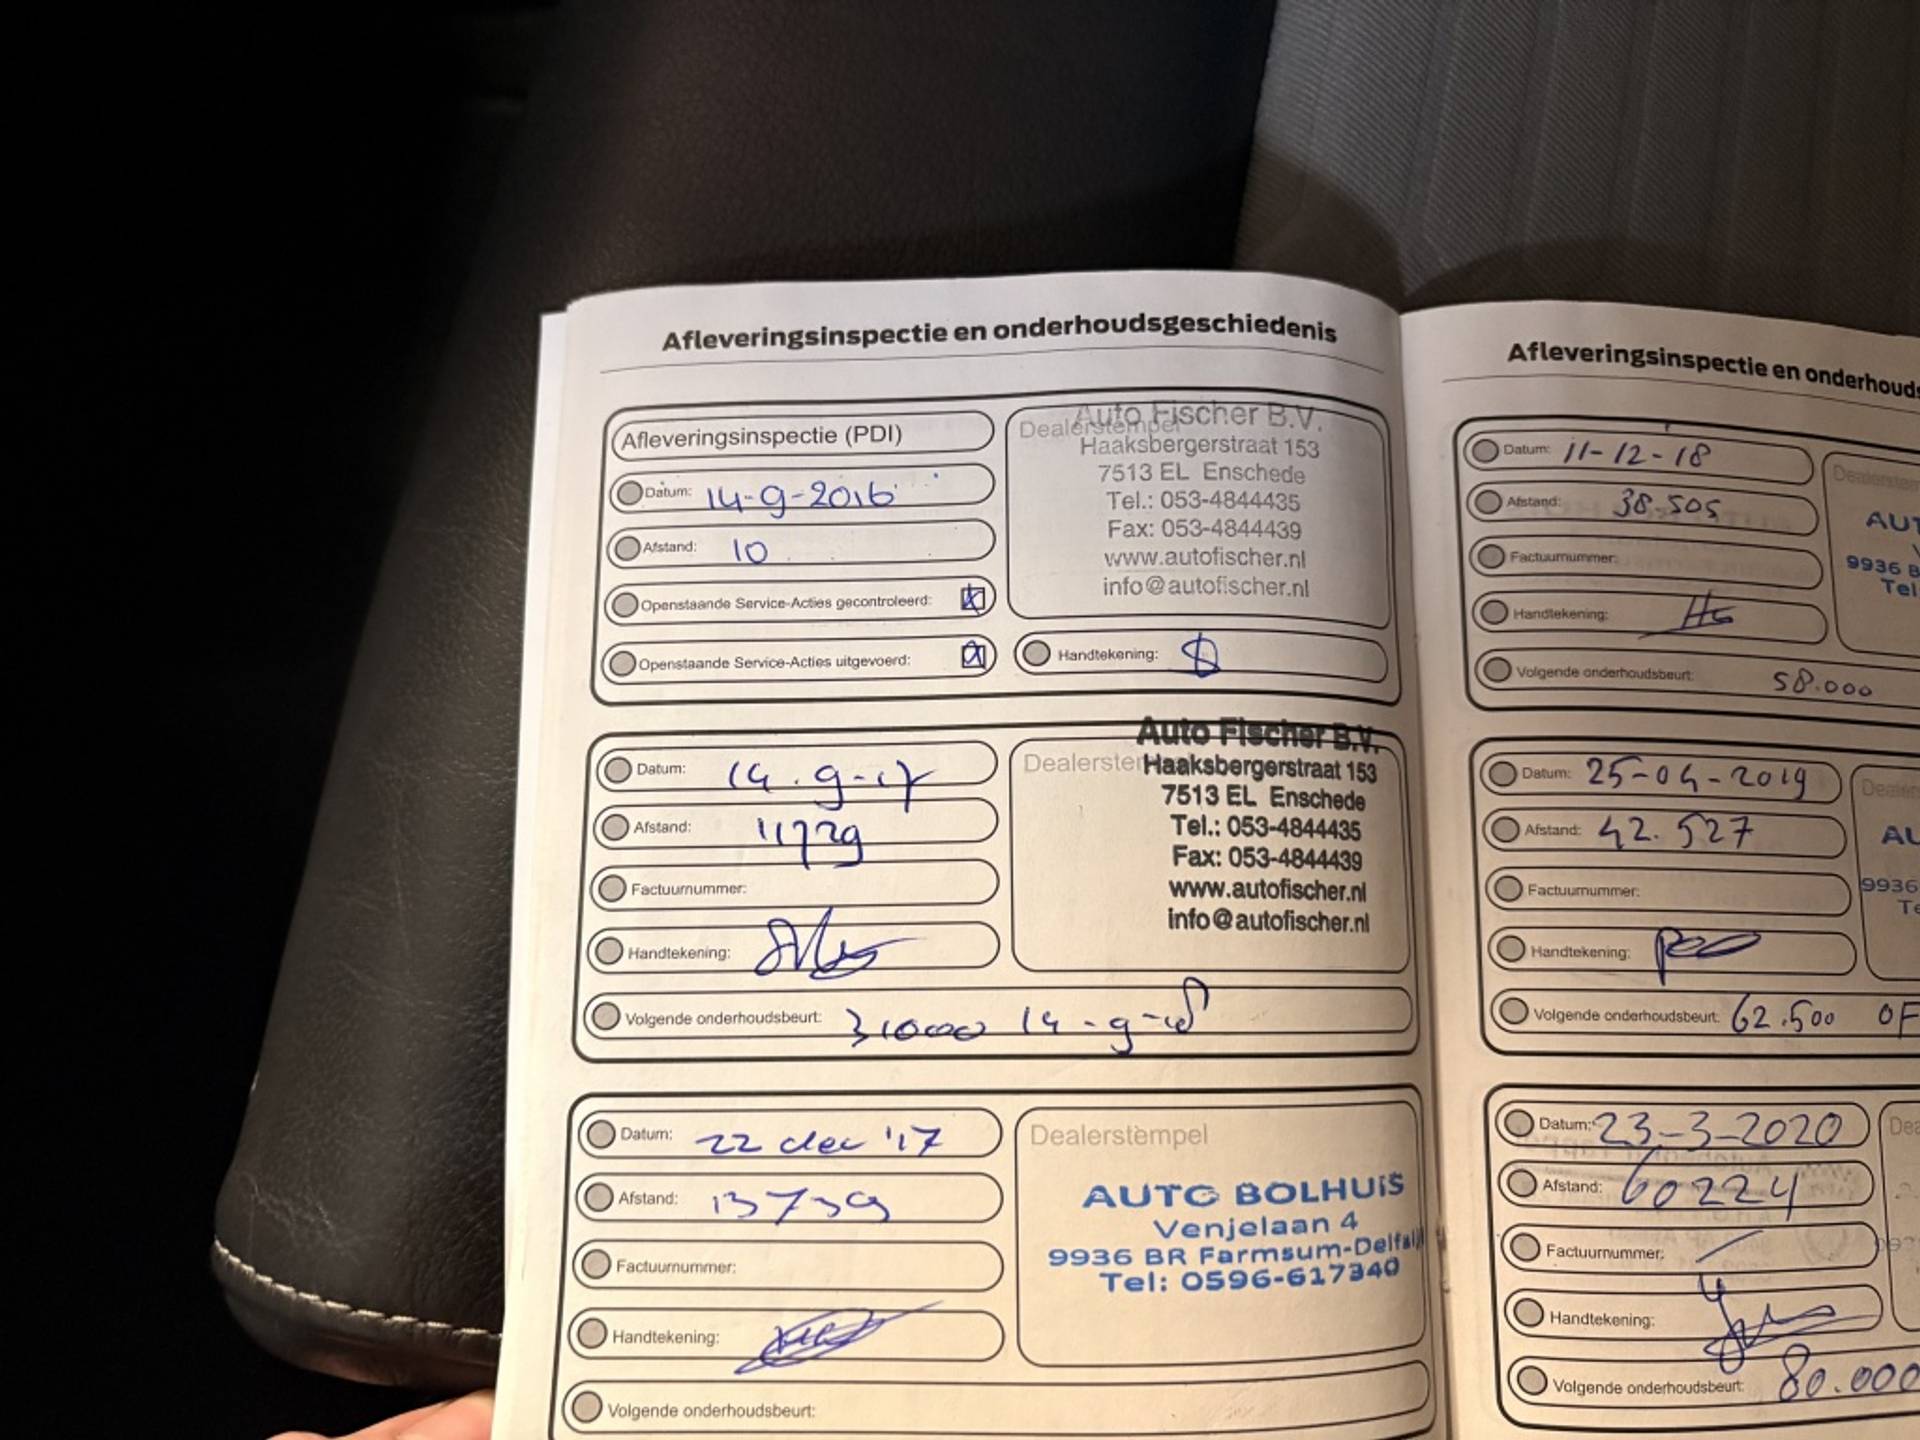 Afleveringsinspectie en onderhoudsgeschiedenis
Afleveringsinspectie (PDI)
Datum: 14-9-2016
Afstand: 10
Openstaande Service-Acties gecontroleerd:
Openstaande Service-Acties uitgevoerd:
Dealerstempel
Auto Fischer B.V.
Haaksbergerstraat 153
7513 EL Enschede
Tel.: 053-4844435
Fax: 053-4844439
www.autofischer.nl
info@autofischer.nl
Handtekening:
Datum: 14.9-17
Afstand: 11729
Factuurnummer:
Handtekening:
Volgende onderhoudsbeurt: 31000 14-9-18
Auto Fischer B.V.
Haaksbergerstraat 153
7513 EL Enschede
Tel.: 053-4844435
Fax: 053-4844439
www.autofischer.nl
info@autofischer.nl
Datum: 22 dec '17
Afstand: 13739
Factuurnummer:
Handtekening:
Volgende onderhoudsbeurt:
Dealerstempel
AUTO BOLHUIS
Venjelaan 4
9936 BR Farmsum-Delfzijl
Tel: 0596-617340
Afleveringsinspectie en onderhouds
Datum: 11-12-18
Afstand: 38.505
Factuurnummer:
Handtekening:
Volgende onderhoudsbeurt: 58.000
AUT
9936 B
Tel
Datum: 25-04-2019
Afstand: 42.527
Factuurnummer:
Handtekening:
Volgende onderhoudsbeurt: 62.500 OF
AU
9936
Te
Datum: 23-3-2020
Afstand: 60224
Factuurnummer: -
Handtekening:
Volgende onderhoudsbeurt: 80.000